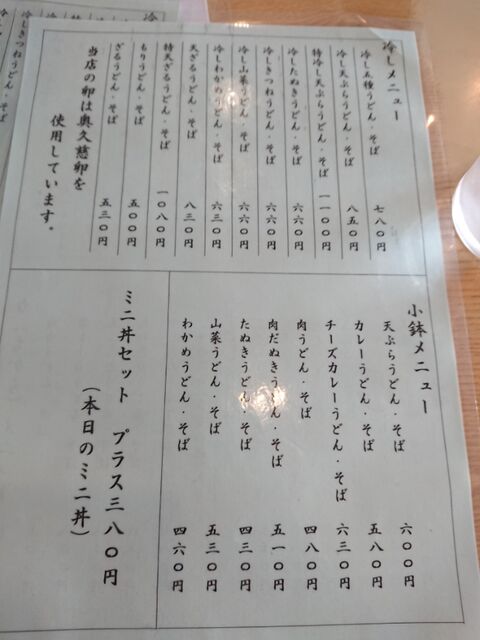 冷しメニュー
冷し五種うどん・そば 七八〇円
冷し天ぷらうどん・そば 八五〇円
特冷し天ぷらうどん・そば 一一〇〇円
冷したぬきうどん・そば 六六〇円
冷しきつねうどん・そば 六六〇円
冷し山菜うどん・そば 六六〇円
冷しわかめうどん・そば 六三〇円
天ざるうどん・そば 八三〇円
特天ざるうどん・そば 一〇八〇円
もりうどん・そば 五〇〇円
ざるうどん・そば 五三〇円
当店の卵は奥久慈卵を
使用しています。
小鉢メニュー
天ぷらうどん・そば 六〇〇円
カレーうどん・そば 五八〇円
チーズカレーうどん・そば 六三〇円
肉うどん・そば 四八〇円
肉だぬきうどん・そば 五一〇円
たぬきうどん・そば 四三〇円
山菜うどん・そば 五三〇円
わかめうどん・そば 四六〇円
ミニ丼セット プラス三八〇円
（本日のミニ丼）
冷しきつねうどん・そば